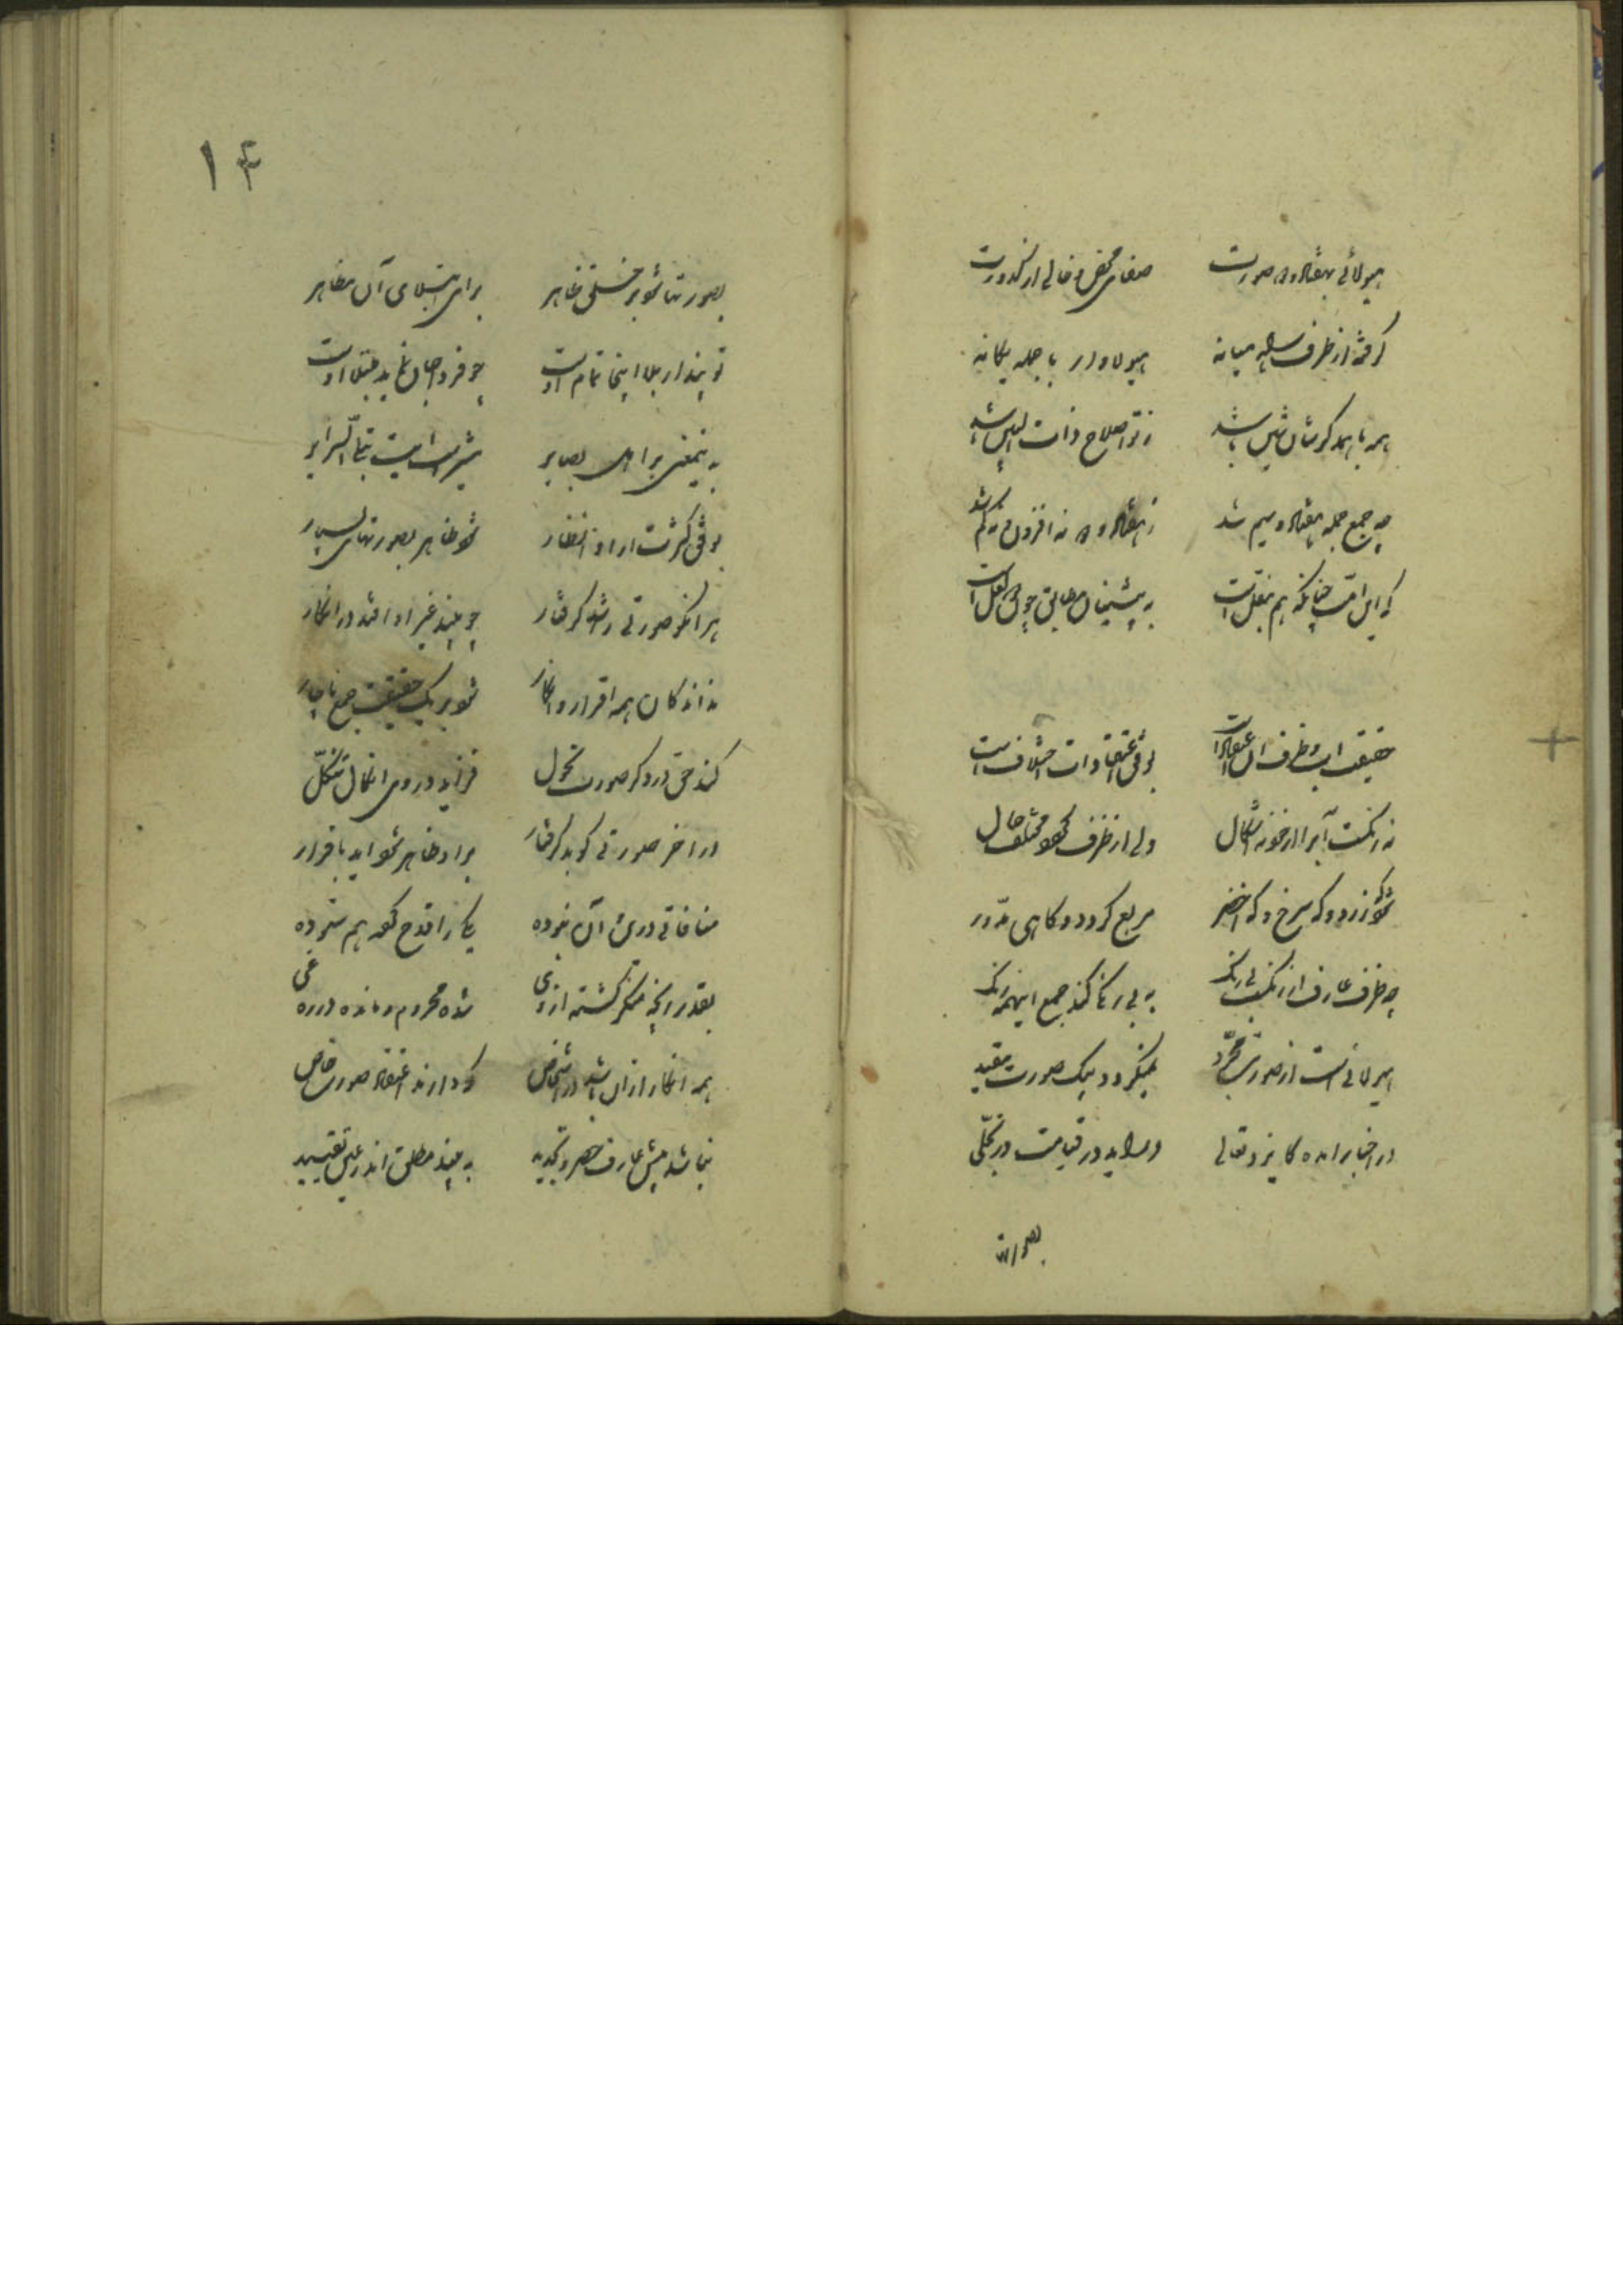 هیولائی بهفتاد و دو صورت صفای محض و خالی از کدورت
گرفته از طرف میانه هیولاوار با جمله یکانه
همه با همدگرشان باشد ذات باشد
چه جمع جمله هفتاد و سیم شد ز هفتاد و دو نه افزون و نه کم شد
که این امت چنانکه هم بنقلست به پیشینیان مطابق چون
حقیقت آب و ظرف آن اعتقاداتست بوفق اعتقادات اختلافست
نه رنگست آب را از خود نه اشکال ولی از ظرف مختلف حال
شود که زرد و که سرخ و که اخضر مربع گردد و گاهی مدور
چه ظرف عارف از رنگست بی رنگ به بی رنگی کند جمع اینهمه رنگ
هیولائی است از صورت مجرد نمیگردد بیک صورت مقید
در اخبار آمده کایزد تعالی درآید در قیامت در تجلی
بصورتها
۱۴
بصورتها شود بر خلق ظاهر برای ابتلای آن مظاهر
تو پندار بلا اینجا تمام است چو فردا جان نماید ابتلا اوست
به تمعنی بر اهل بصایر تبلی السرایر
بوفق کثرت او از انظار شود ظاهر بصورتهای بسیار
هر آنکو صورتی را شد گرفتار چو بیند غیر او افتد در انکار
نداند کان همه اقرار و انکار شود بر یک حقیقت جمع ناچار
کند حق در دگر صورت تحول فزاید در وی اشکال تشکل
در آخر صورتی کو بد گرفتار بر او ظاهر شود آید باقرار
منافاتی در آن نبوده یکی را قدح کو هم ستوده
بقدر آنچه منکر گشته از وی شده محروم و مانده در ره غی
همه انکار از آن باشد در اشخاص که دارند اعتقاد صورت خاص
نباشد پیش عارف حصر و تحدید به بیند مطلق اندر عین تقیید